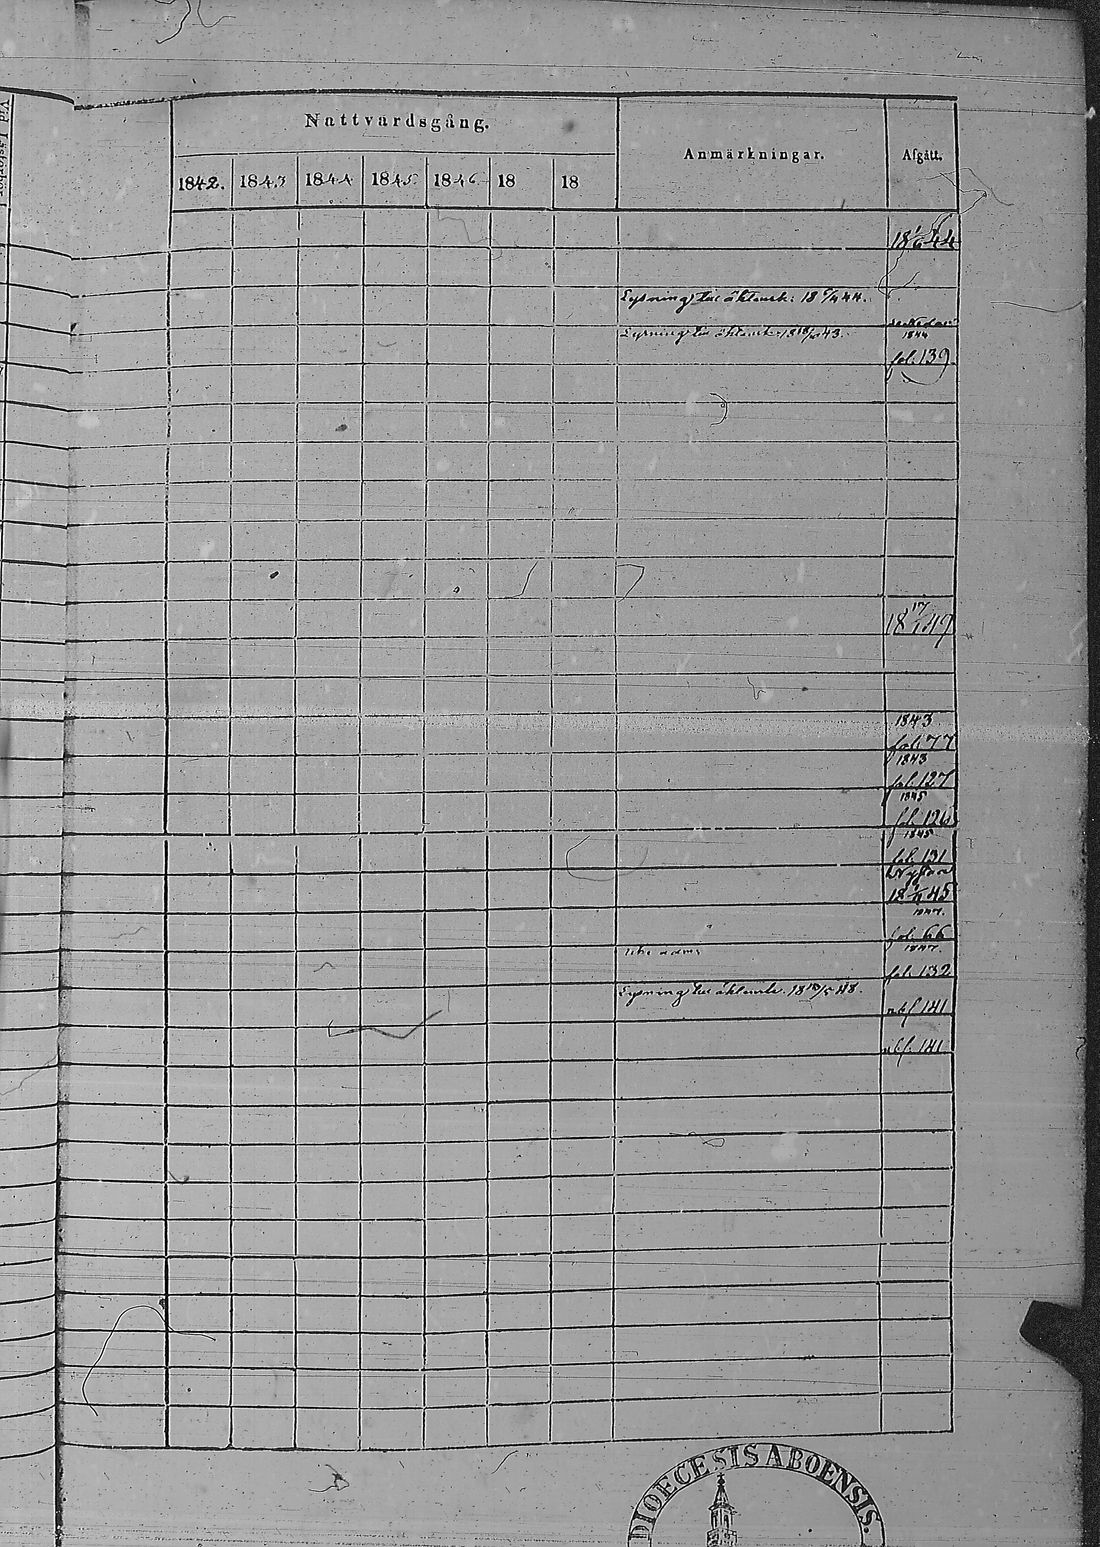 Nattvardsgång.
Anmärkningar.
Afgått.
1842. 1843 1844 1845. 1846. 18 18
18 44
Lysning till äktensk. 18 44.
Lysning till äktensk. 18 43.
1844
fol. 139
18 17/ 49
1843
fol. 77
1843
fol. 127
1845
fol. 126
1845
fol. 131
18 45
1847.
fol. 66
1847.
fol. 132
Lysning till äktensk. 18 48.
141
141
DIOECESIS ABOENSIS.